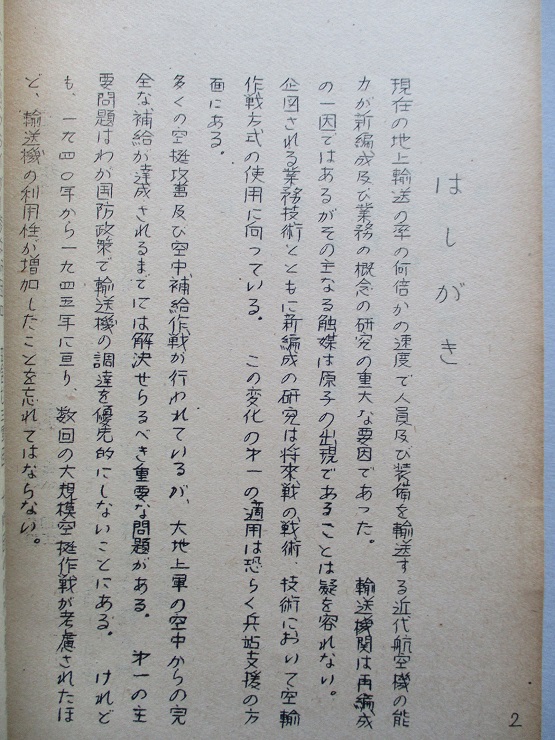 はしがき
現在の地上輸送の率の何倍かの速度で人員及び装備を輸送する近代航空機の能
力が新編成及び業務の概念の研究の重大な要因であった。　輸送機関は再編成
の一因ではあるがその主なる触媒は原子の出現であることは疑を容れない。
企図される業務技術とともに新編成の研究は将来戦の戦術、技術において空輸
作戦方式の使用に向っている。　この変化の第一の適用は恐らく兵站支援の方
面にある。
多くの空挺攻害及び空中補給作戦が行われているが、大地上軍の空中からの完
全な補給が達成されるまでには解決せらるべき重要な問題がある。　第一の主
要問題はわが国防政策で輸送機の調達を優先的にしないことにある。　けれど
も、一九四〇年から一九四五年に亘り、数回の大規模空挺作戦が考慮されたほ
ど、輸送機の利用性が増加したことを忘れてはならない。
2